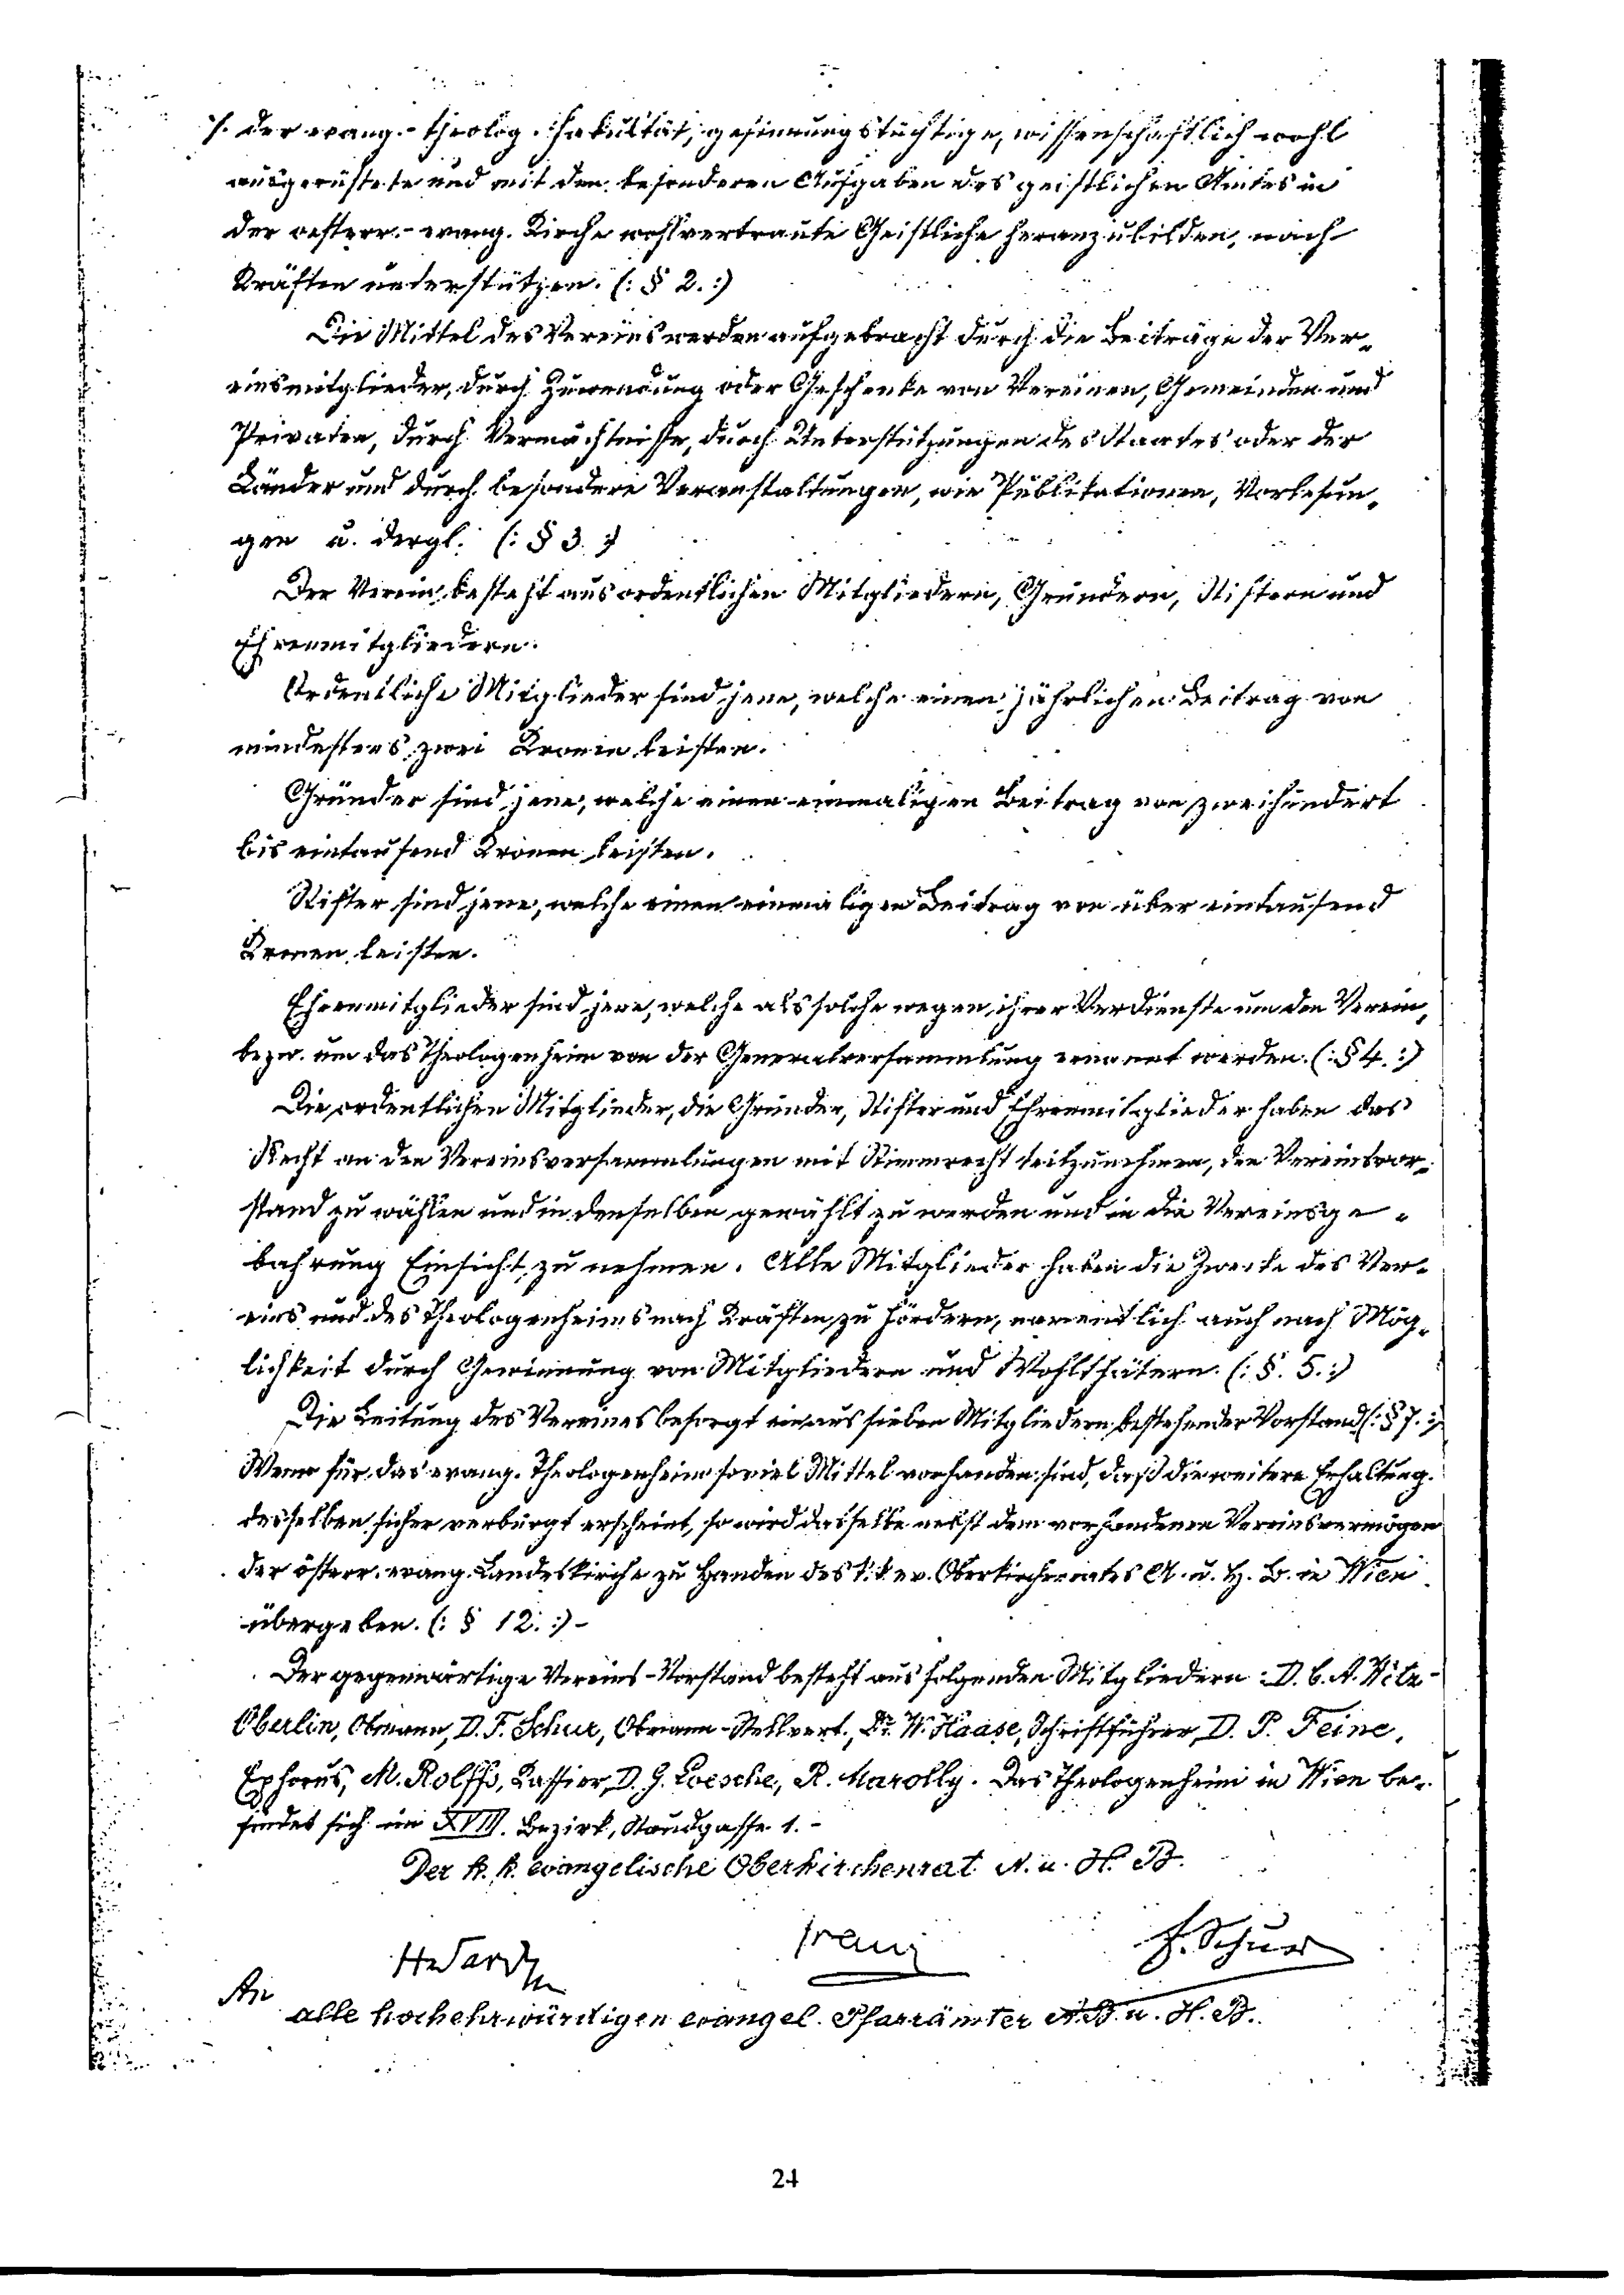 k. der evang.-theolog. Fakultät, gesinnungstüchtige, wissenschaftlich wohl
ausgerüstete und mit den besonderen Aufgaben des geistlichen Amtes in
der oesterr.-evang. Kirche wohlvertraute Geistliche heranzubilden, nach
Kräften unterstützen. (: § 2. :)
Die Mittel des Vereins werden aufgebracht durch die Beiträge der Ver-
einsmitglieder, durch Zuwendung oder Geschenke von Vereinen, Gemeinden und
Privaten, durch Vermächtnisse, durch Unterstützungen des Staates oder der
Länder und durch besondere Veranstaltungen, wie Publikationen, Vorlesun-
gen u. dergl. (: § 3 :)
Der Verein besteht aus ordentlichen Mitgliedern, Gründern, Stiftern und
Ehrenmitgliedern.
Ordentliche Mitglieder sind jene, welche einen jährlichen Beitrag von
mindestens zwei Kronen leisten.
Gründer sind jene, welche einen einmaligen Beitrag von zweihundert
bis eintausend Kronen leisten.
Stifter sind jene, welche einen einmaligen Beitrag von über eintausend
Kronen leisten.
Ehrenmitglieder sind jene, welche als solche wegen ihrer Verdienste um den Verein,
bezw. um das Theologenheim von der Generalversammlung ernannt werden. (: § 4. :)
Die ordentlichen Mitglieder, die Gründer, Stifter und Ehrenmitglieder haben das
Recht an den Vereinsversammlungen mit Stimmrecht teilzunehmen, den Vereinsvor-
stand zu wählen und in denselben gewählt zu werden und in die Vereinsge-
bahrung Einsicht zu nehmen. Alle Mitglieder haben die Zwecke des Ver-
eins und des Theologenheims nach Kräften zu fördern, namentlich auch nach Mög-
lichkeit durch Gewinnung von Mitgliedern und Wohlthätern. (: §. 5. :)
Die Leitung des Vereines besorgt ein aus sieben Mitgliedern bestehender Vorstand (: § 7. :)
Wenn für das evang. Theologenheim soviel Mittel vorhanden sind, daß die weitere Erhaltung
desselben sicher verbürgt erscheint, so wird dasselbe nebst dem vorhandenen Vereinsvermögen
der österr. evang. Landeskirche zu Handen des k. k. ev. Oberkirchenrates A. u. H. B. in Wien
übergeben. (: § 12. :) -
Der gegenwärtige Vereins-Vorstand besteht aus folgenden Mitgliedern: D. C. A. Witz-
Oberlin, Obmann, D. F. Schur, Obmann-Stellvert., Dr. W. Haase, Schriftführer, D. P. Feine,
Ephorus, M. Rolffs, Kassier, D. G. Loesche, R. Marolly. Das Theologenheim in Wien be-
findet sich im XVIII. Bezirk, Staudgasse 1. -
Der k. k. evangelische Oberkirchenrat A. u. H. B.
Franz F. Schur
An
alle hochehrwürdigen evangel. Pfarrämter A. B. u. H. B.
24